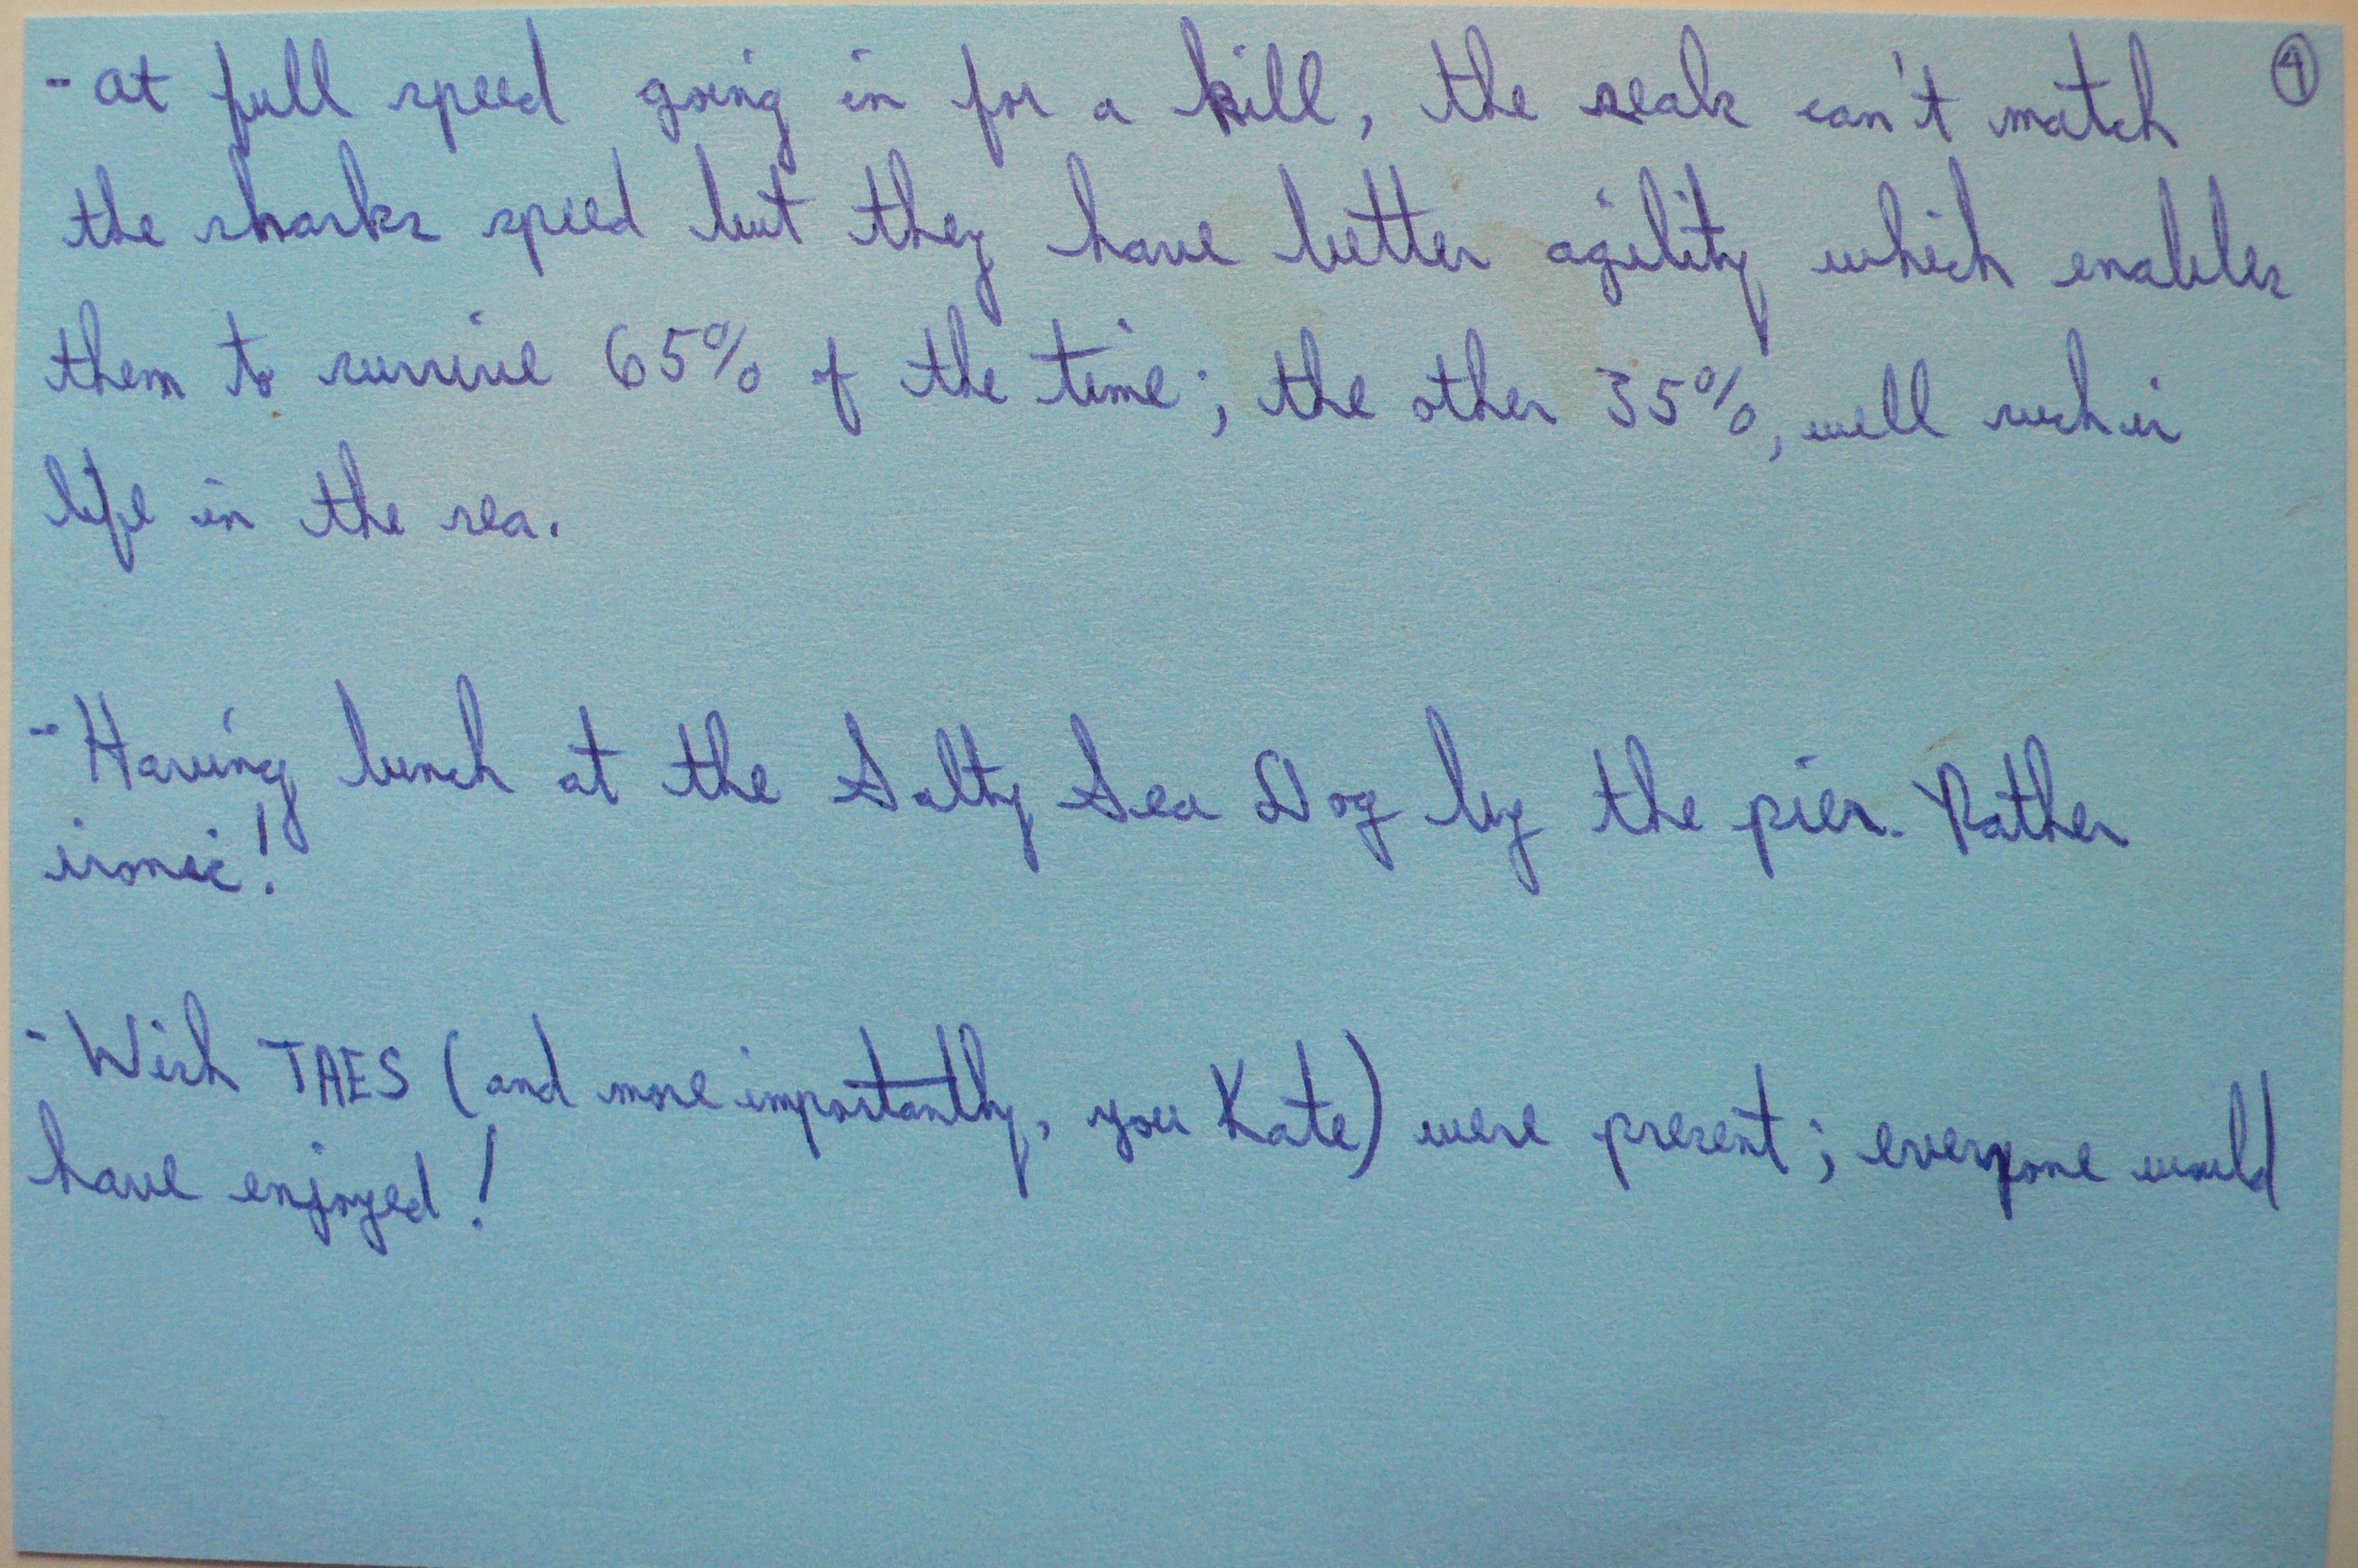 ④
- at full speed going in for a kill, the seals can't match
the sharks speed but they have better agility which enables
them to survive 65% of the time; the other 35%, well such is
life in the sea.
- Having lunch at the Salty Sea Dog by the pier. Rather
ironic!
- Wish TAES (and more importantly, you Kate) were present; everyone would
have enjoyed!